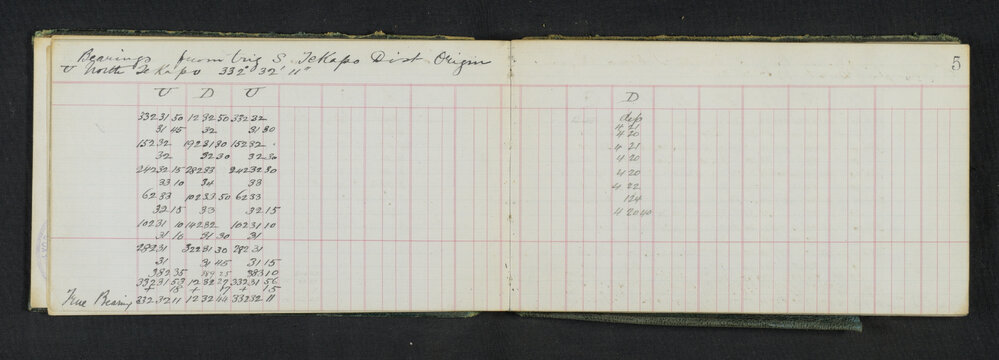 Bearings from Trig S. Tekapo Dist Origin
U North Tekapo 332° 32' 11"
5
U D U
332 31 50 12 32 50 332 32
31 45 32 31 30
152 32 192 31 30 152 32
32 32 30 32 30
242 32 15 282 33 242 32 30
33 10 34 33
62 33 102 33 50 62 33
32 15 33 32 15
102 31 10 142 32 102 31 10
31 10 31 30 31
282 31 322 31 30 282 31
31 31 45 31 15
382 35 389 25 383 10
332 31 53 12 32 27 332 31 56
+ 18 + 17 + 15
True Bearing 332 32 11 12 32 44 332 32 11
D
dep
4 21
4 20
4 21
4 20
4 20
4 22
124
4 20 40